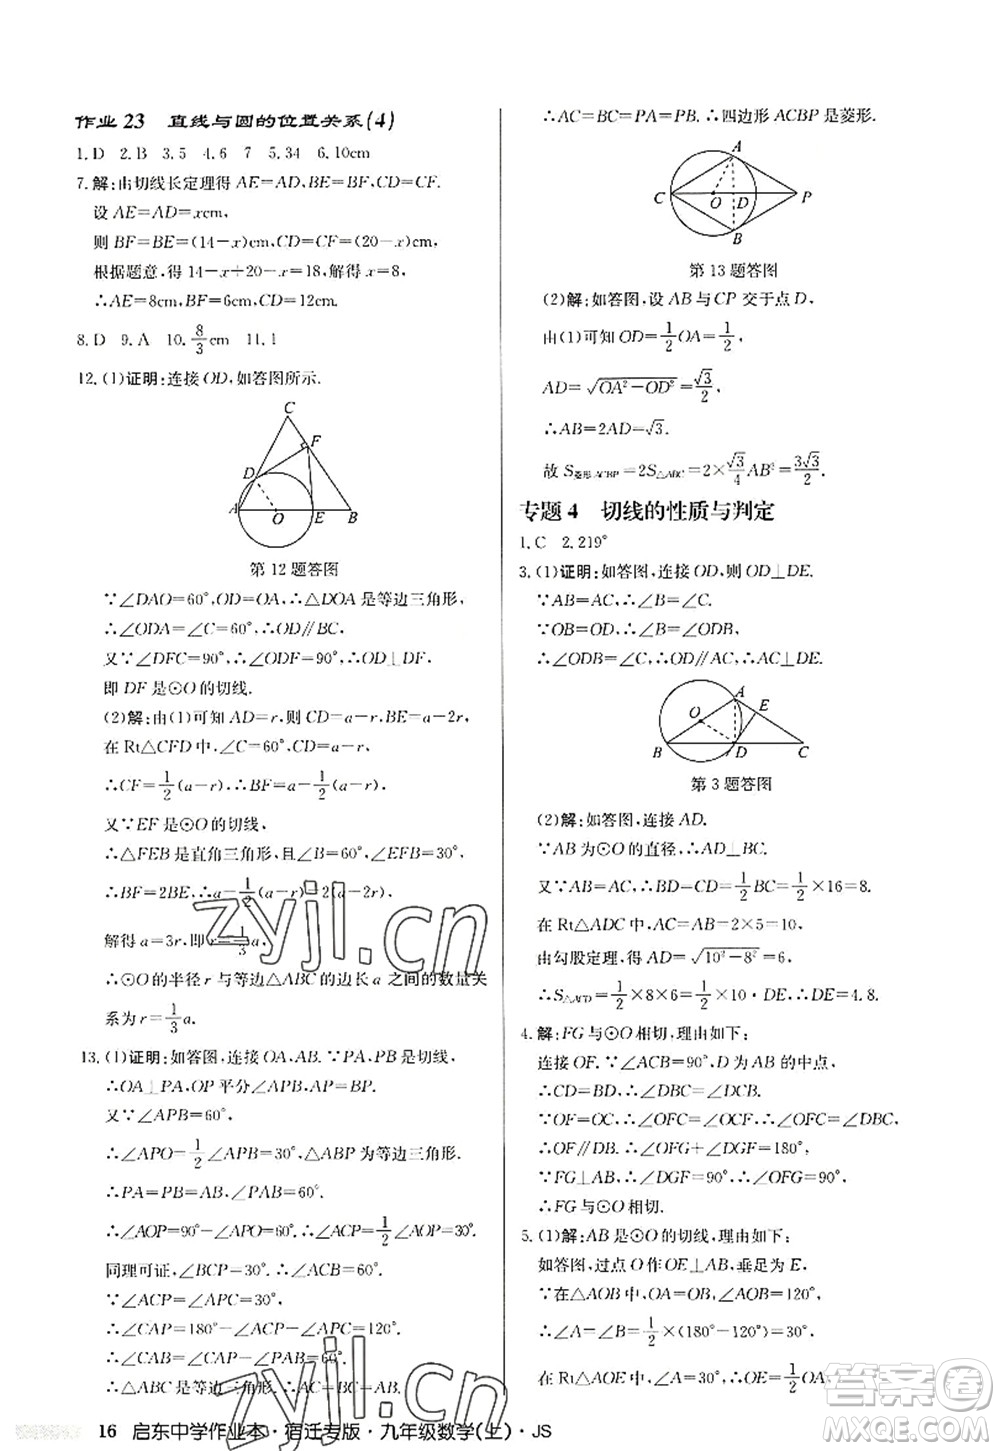 作业 23　直线与圆的位置关系(4)
1. D　2. B　3. 5　4. 6　7　5. 34　6. 10cm
7. 解:由切线长定理得 AE=AD,BE=BF,CD=CF.
设 AE=AD=xcm,
则 BF=BE=(14-x)cm,CD=CF=(20-x)cm,
根据题意,得 14-x+20-x=18,解得 x=8,
∴AE=8cm,BF=6cm,CD=12cm.
8. D　9. A　10. 8/3 cm　11. 1
12. (1)证明:连接 OD,如答图所示.
C
F
D
A
O
E
B
第 12 题答图
∵∠DAO=60°,OD=OA,∴△DOA 是等边三角形,
∴∠ODA=∠C=60°,∴OD∥BC,
又∵∠DFC=90°,∴∠ODF=90°,∴OD⊥DF,
即 DF 是⊙O 的切线.
(2)解:由(1)可知 AD=r,则 CD=a-r,BE=a-2r,
在 Rt△CFD 中,∠C=60°,CD=a-r,
∴CF=1/2(a-r),∴BF=a-1/2(a-r),
又∵EF 是⊙O 的切线,
∴△FEB 是直角三角形,且∠B=60°,∠EFB=30°,
∴BF=2BE,∴a-1/2(a-r)=2(a-2r),
解得 a=3r,即 r=1/3 a,
∴⊙O 的半径 r 与等边△ABC 的边长 a 之间的数量关
系为 r=1/3 a.
13. (1)证明:如答图,连接 OA,AB. ∵PA,PB 是切线,
∴OA⊥PA,OP 平分∠APB,PA=PB.
又∵∠APB=60°,
∴∠APO=1/2∠APB=30°,△ABP 为等边三角形.
∴PA=PB=AB,∠PAB=60°,
∴∠AOP=90°-∠APO=60°,∴∠ACP=1/2∠AOP=30°.
同理可证,∠BCP=30°,
∴∠ACP=∠APC=30°,
∴∠CAP=180°-∠ACP-∠APC=120°,
∴∠CAB=∠CAP-∠PAB=60°,
∴△ABC 是等边三角形.∴AC=BC=AB.
∴AC=BC=PA=PB. ∴四边形 ACBP 是菱形.
A
C
O
D
P
B
第 13 题答图
(2)解:如答图,设 AB 与 CP 交于点 D,
由(1)可知 OD=1/2 OA=1/2,
AD=√(OA²-OD²)=√3/2,
∴AB=2AD=√3.
故 S菱形ACBP=2S△ABC=2×√3/4 AB²=3√3/2.
专题 4　切线的性质与判定
1. C　2. 219°
3. (1)证明:如答图,连接 OD,则 OD⊥DE.
∵AB=AC,∴∠B=∠C.
∵OB=OD,∴∠B=∠ODB,
∴∠ODB=∠C,∴OD∥AC,∴AC⊥DE.
A
E
O
B
D
C
第 3 题答图
(2)解:如答图,连接 AD.
∵AB 为⊙O 的直径,∴AD⊥BC.
又∵AB=AC,∴CD=BD=1/2 BC=1/2×16=8.
在 Rt△ADC 中,AC=AB=2×5=10,
由勾股定理,得 AD=√(10²-8²)=6,
∴S△ACD=1/2×8×6=1/2×10·DE,∴DE=4.8.
4. 解:FG 与⊙O 相切,理由如下:
连接 OF. ∵∠ACB=90°,D 为 AB 的中点,
∴CD=BD,∴∠DBC=∠DCB.
∵OF=OC,∴∠OFC=∠OCF,∴∠OFC=∠DBC,
∴OF∥DB. ∴∠OFG+∠DGF=180°.
∵FG⊥AB,∴∠DGF=90°,∴∠OFG=90°,
∴FG 与⊙O 相切.
5. (1)解:AB 是⊙O 的切线,理由如下:
如答图,过点 O 作 OE⊥AB,垂足为 E,
∵在△AOB 中,OA=OB,∠AOB=120°,
∴∠A=∠B=1/2×(180°-120°)=30°,
∴在 Rt△AOE 中,OE=1/2 OA=1/2×10=5,
16　启东中学作业本·宿迁专版·九年级数学(上)·JS
zyjl.cn
zyjl.cn
答案圈
MXQE.COM